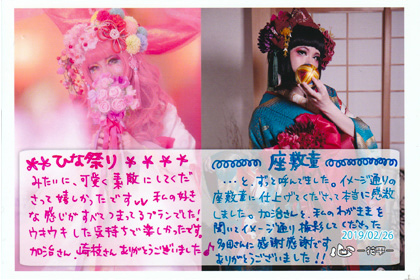 ひな祭り
みたいに、可愛く素敵にしてくだ
さって嬉しかったですw 私の好き
な感じがすべてつまってるプランでした!
ウキウキした気持ちで楽しかったです
加治さん、崎枝さん ありがとうございました♪
座敷童
…と、ずっと呼んでました。イメージ通りの
座敷童に仕上げてくださって本当に感激
しました。加治さんと、私のわがままを
聞いてイメージ通り撮影してくださった
多田さんに感謝感謝です
ありがとうございました!!
2019/02/26